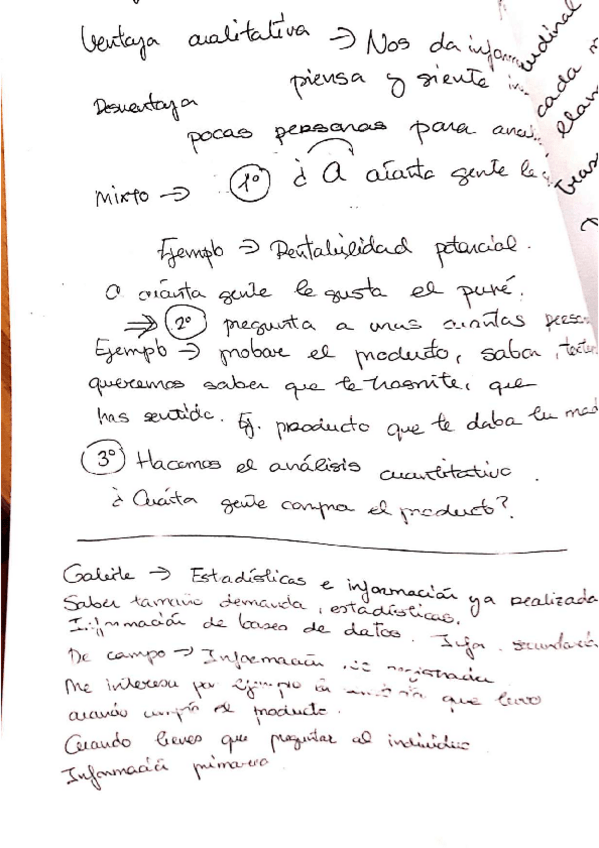 Ventaja cualitativa → Nos da inform
piensa y siente
Desventaja
pocas personas para
Mixto → 1º ¿A cuánta gente le
Ejemplo → Rentabilidad potencial.
a cuánta gente le gusta el puré.
⇒ 2º pregunta a unas cuantas
Ejemplo → probar el producto, saber,
queremos saber que te trasmite, que
has sentido. Ej. producto que te daba tu mad
3º Hacemos el análisis cuantitativo.
¿Cuánta gente compra el producto?
Gabite → Estadísticas e información ya realizada
Saber tamaño demanda, estadísticas.
Información de bases de datos. Infor. secundaria
De campo → Información
Me interesa por ejemplo que llevo
cuando el producto.
Cuando tienes que preguntar al individuo
Información primaria
cada